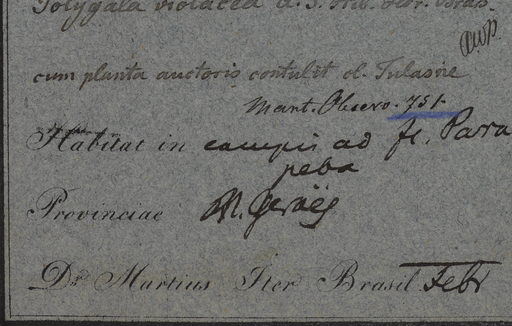 Polygala violacea A. S. Hil. Flor. Bras.
cum planta auctoris contulit cl. Tulasne
Mart. Observ. 751.
Habitat in campis ad fl. Parao
peba
Provinciae M. Geraës
Dr. Martius Iter Brasil Febr